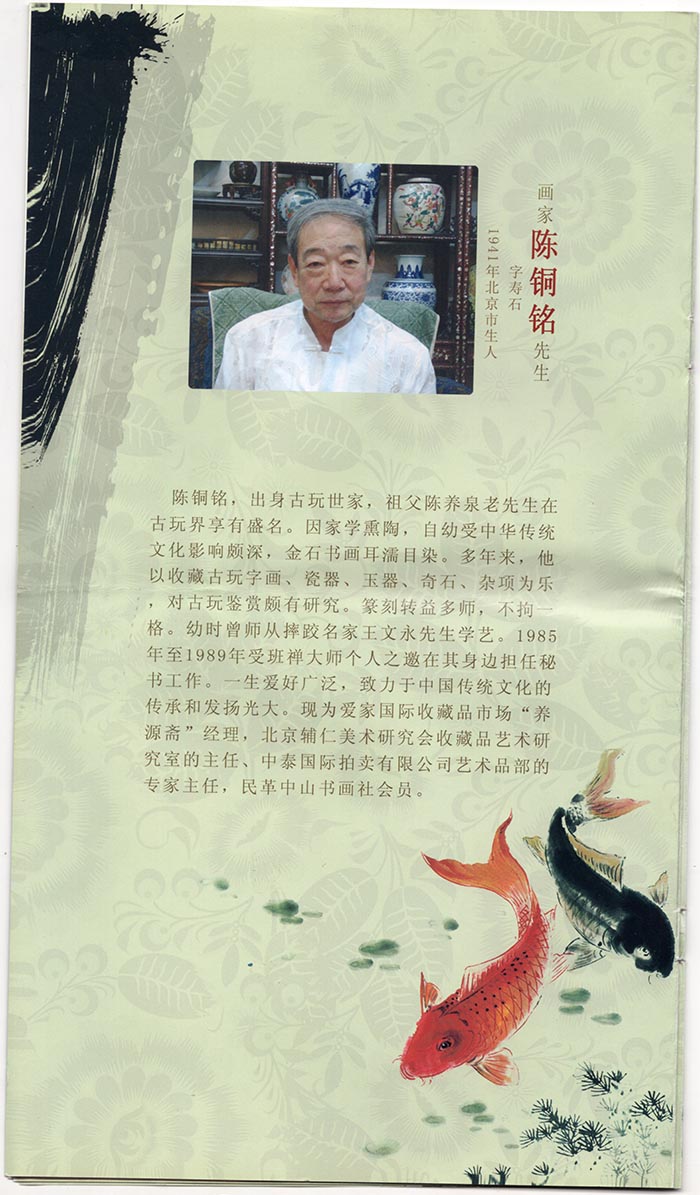 画家陈铜铭先生
字寿石
1941年北京市生人
陈铜铭，出身古玩世家，祖父陈养泉老先生在
古玩界享有盛名。因家学熏陶，自幼受中华传统
文化影响颇深，金石书画耳濡目染。多年来，他
以收藏古玩字画、瓷器、玉器、奇石、杂项为乐
，对古玩鉴赏颇有研究。篆刻转益多师，不拘一
格。幼时曾师从摔跤名家王文永先生学艺。1985
年至1989年受班禅大师个人之邀在其身边担任秘
书工作。一生爱好广泛，致力于中国传统文化的
传承和发扬光大。现为爱家国际收藏品市场“养
源斋”经理，北京辅仁美术研究会收藏品艺术研
究室的主任、中泰国际拍卖有限公司艺术品部的
专家主任，民革中山书画社会员。